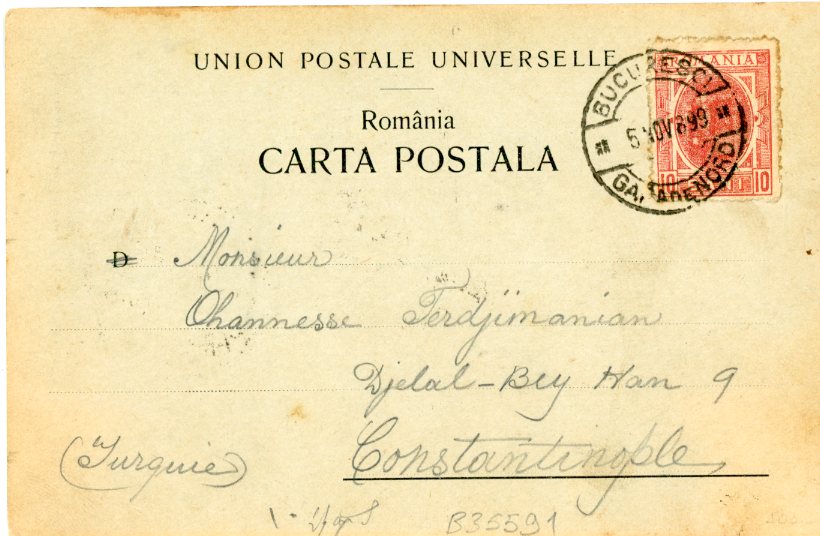 UNION POSTALE UNIVERSELLE
România
CARTA POSTALA
ROMANIA
10 10
BUCURESCI
5 NOV 899
GARA DE NORD
D Monsieur
Ohannesse Terdjimanian
Djelal-Bey Han 9
Constantinople
(Turquie)
B35591